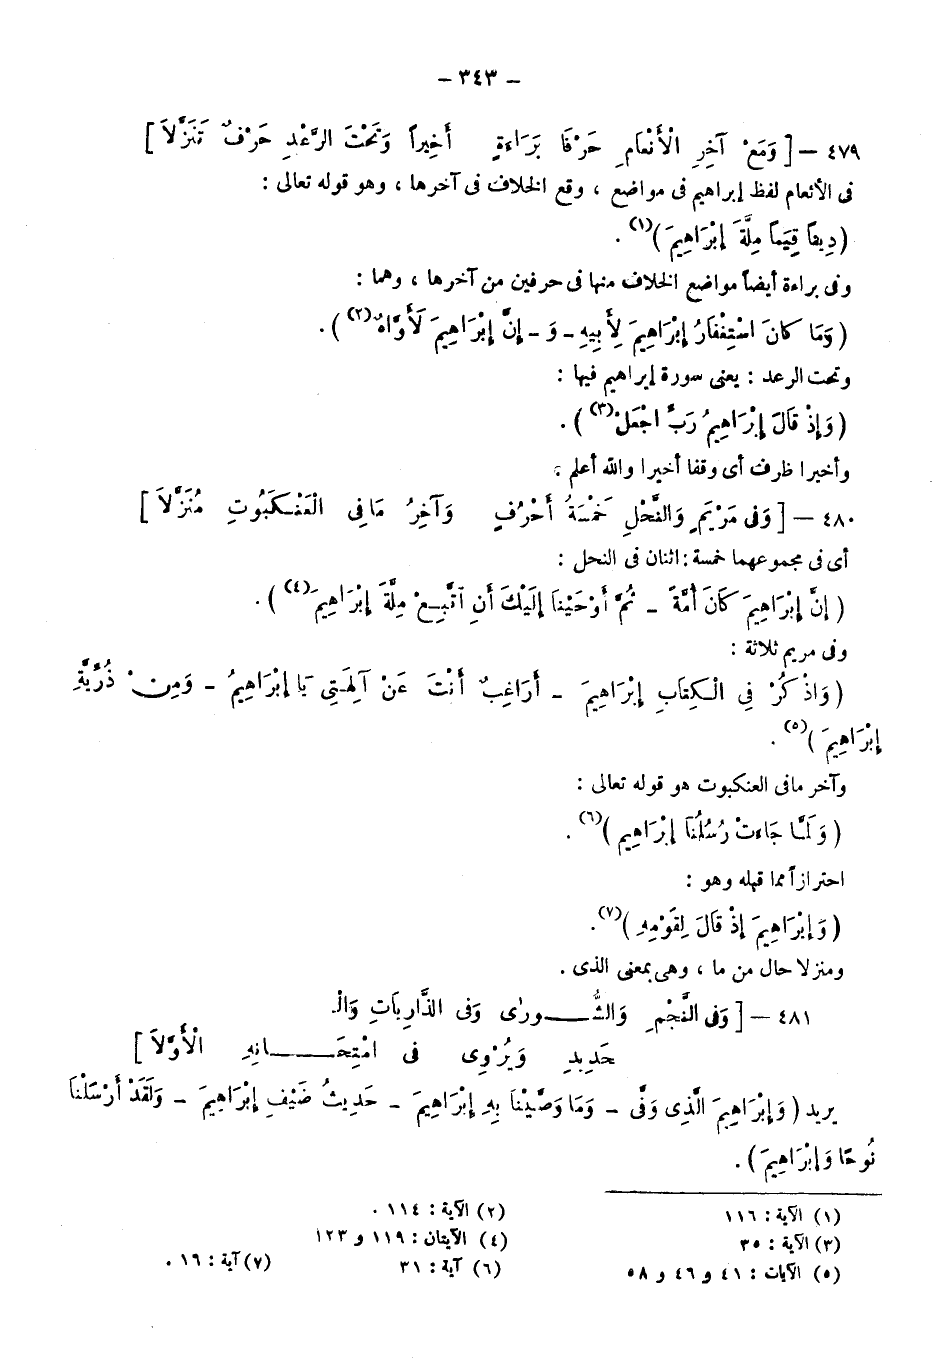 – ٣٤٣ –
٤٧٩ – [ وَمَعْ آخِرِ الْأَنْعَامِ حَرْفَا بَرَاءَةٍ أَخِيراً وَتَحْتَ الرَّعْدِ حَرْفٌ تَنَزَّلاَ ]
فى الأنعام لفظ إبراهيم فى مواضع ، وقع الخلاف فى آخرها ، وهو قوله تعالى :
( دِيناً قِيَماً مِلَّةَ إِبْرَاهِيمَ )(١) .
وفى براءة أيضاً مواضع الخلاف منها فى حرفين من آخرها ، وهما :
( وَمَا كَانَ اسْتِغْفَارُ إِبْرَاهِيمَ لِأَبِيهِ - وَ - إِنَّ إِبْرَاهِيمَ لَأَوَّاهٌ(٢) ) .
وتحت الرعد : يعنى سورة إبراهيم فيها :
( وَإِذْ قَالَ إِبْرَاهِيمُ رَبِّ اجْعَلْ(٣) ) .
وأخيرا ظرف أى وقفا أخيرا والله أعلم ،
٤٨٠ – [ وَفى مَرْيَمٍ وَالنَّحْلِ خَمْسَةُ أَحْرُفٍ وَآخِرُ مَا فى الْعَنْكَبُوتِ مُنَزَّلاَ ]
أى فى مجموعهما خمسة : اثنان فى النحل :
( إِنَّ إِبْرَاهِيمَ كَانَ أُمَّةً - ثُمَّ أَوْحَيْنَا إِلَيْكَ أَنِ اتَّبِعْ مِلَّةَ إِبْرَاهِيمَ(٤) ) .
وفى مريم ثلاثة :
( وَاذْكُرْ فِي الْكِتَابِ إِبْرَاهِيمَ - أَرَاغِبٌ أَنْتَ عَنْ آلِهَتِي يَا إِبْرَاهِيمُ - وَمِنْ ذُرِّيَّةِ
إِبْرَاهِيمَ )(٥) .
وآخر مافى العنكبوت هو قوله تعالى :
( وَلَمَّا جَاءَتْ رُسُلُنَا إِبْرَاهِيم )(٦) .
احترازاً مما قبله وهو :
( وَإِبْرَاهِيمَ إِذْ قَالَ لِقَوْمِهِ )(٧) .
ومنزلا حال من ما ، وهى بمعنى الذى .
٤٨١ – [ وَفى النَّجْمِ وَالشُّورٰى وَفى الذَّارِيَاتِ وَالْ
حَدِيدِ وَيُرْوِى فى امْتِحَانِهِ الْأَوَّلاَ ]
يريد ( وَإِبْرَاهِيمَ الَّذِى وَفَّى - وَمَا وَصَّيْنَا بِهِ إِبْرَاهِيمَ - حَدِيثُ ضَيْفِ إِبْرَاهِيمَ - وَلَقَدْ أَرْسَلْنَا
نُوحًا وَإِبْرَاهِيمَ ) .
(١) الآية : ١١٦ (٢) الآية : ١١٤ .
(٣) الآية : ٣٥ (٤) الآيتان : ١١٩ و ١٢٣
(٥) الآيات : ٤١ و ٤٦ و ٥٨ (٦) آية : ٣١ (٧) آية : ١٦ .